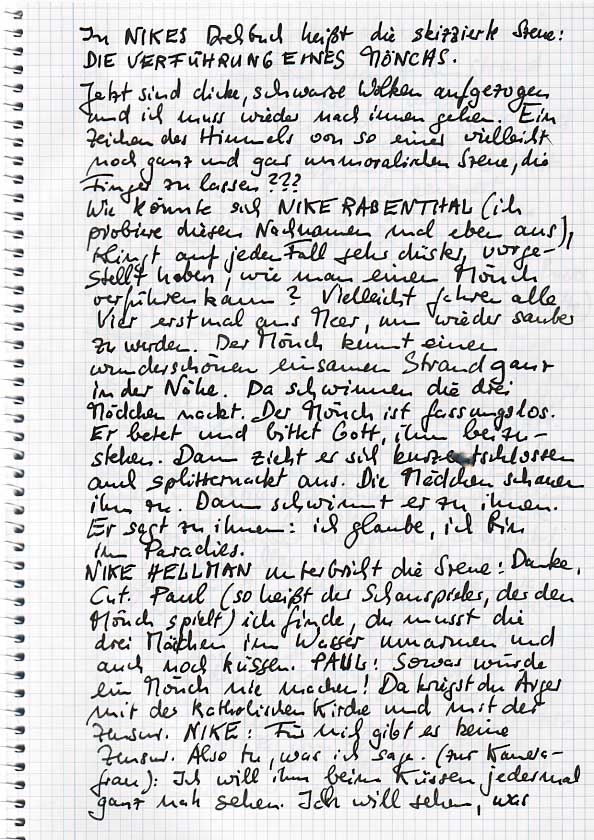 In NIKES Drehbuch heißt die skizzierte Szene:
DIE VERFÜHRUNG EINES MÖNCHS.
Jetzt sind dicke, schwarze Wolken aufgezogen
und ich muss wieder nach innen gehen. Ein
Zeichen des Himmels von so einer vielleicht
noch ganz und gar unmoralischen Szene, die
Finger zu lassen???
Wie könnte sich NIKE RABENTHAL (ich
probiere diesen Nachnamen mal eben aus),
klingt auf jeden Fall sehr düster, vorge-
stellt haben, wie man einen Mönch
verführen kann? Vielleicht fahren alle
Vier erstmal ans Meer, um wieder sauber
zu werden. Der Mönch kennt einen
wunderschönen einsamen Strand ganz
in der Nähe. Da schwimmen die drei
Mädchen nackt. Der Mönch ist fassungslos.
Er betet und bittet Gott, ihm beizu-
stehen. Dann zieht er sich kurzentschlossen
auch splitternackt aus. Die Mädchen schauen
ihm zu. Dann schwimmt er zu ihnen.
Er sagt zu ihnen: ich glaube, ich bin
im Paradies.
NIKE HELLMAN unterbricht die Szene: Danke,
Cut. Paul (so heißt der Schauspieler, der den
Mönch spielt) ich finde, du musst die
drei Mädchen im Wasser umarmen und
auch noch küssen. PAUL: Sowas würde
ein Mönch nie machen! Da kriegst du Ärger
mit der katholischen Kirche und mit der
Zensur. NIKE: Für mich gibt es keine
Zensur. Also tu, was ich sage. (zur Kamera-
frau): Ich will ihn beim Küssen jedesmal
ganz nah sehen. Ich will sehen, was